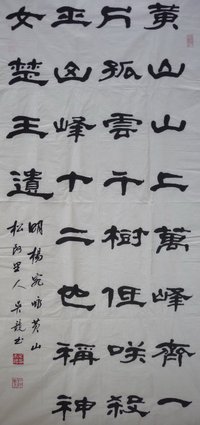 黄山山上萬峰齊一
片孤雲千樹低咲殺
巫山峰十二也稱神
女楚王遺
明楊宛咏黄山
松阿里人吴書